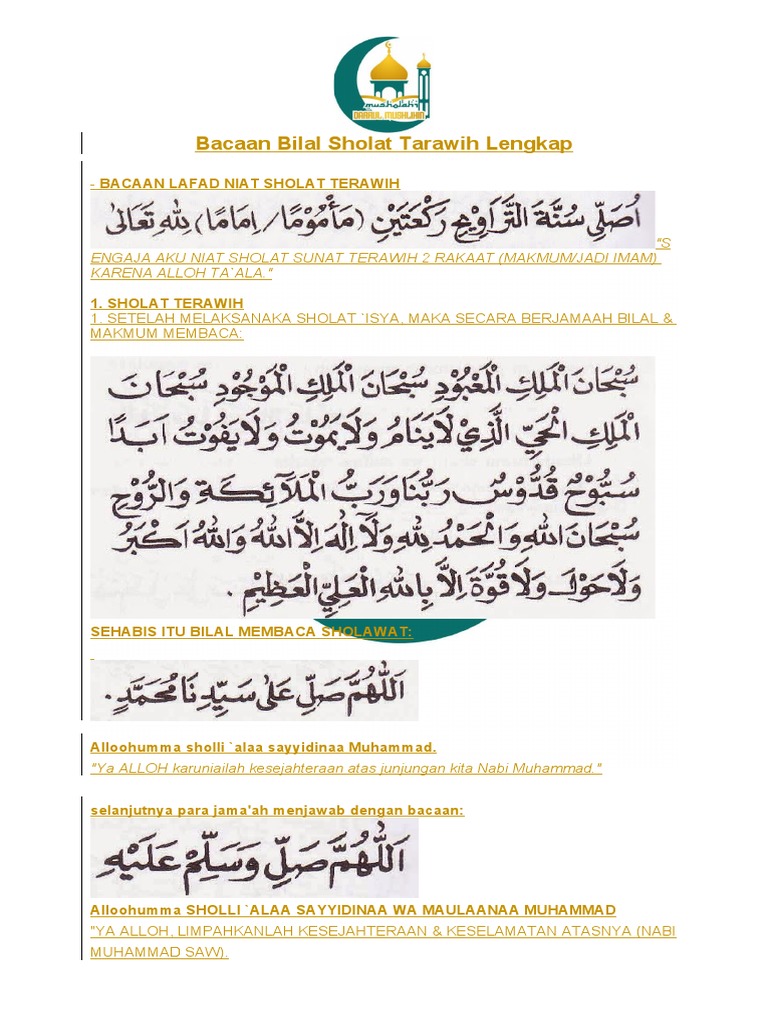 musholah
DARRUL MUSHLIHIN
Bacaan Bilal Sholat Tarawih Lengkap
- BACAAN LAFAD NIAT SHOLAT TERAWIH
اُصَلِّى سُنَّةَ التَّرَاوِيْحِ رَكْعَتَيْنِ (مَأْمُوْمًا/اِمَامًا) لِلهِ تَعَالىٰ
"S
ENGAJA AKU NIAT SHOLAT SUNAT TERAWIH 2 RAKAAT (MAKMUM/JADI IMAM)
KARENA ALLOH TA`ALA."
1. SHOLAT TERAWIH
1, SETELAH MELAKSANAKA SHOLAT `ISYA, MAKA SECARA BERJAMAAH BILAL &
MAKMUM MEMBACA:
سُبْحَانَ الْمَلِكِ الْمَعْبُوْدِ سُبْحَانَ الْمَلِكِ الْمَوْجُوْدِ سُبْحَانَ
الْمَلِكِ الْحَيِّ الَّذِيْ لَايَنَامُ وَلَايَمُوْتُ وَلَايَفُوْتُ اَبَدًا
سُبُّوْحٌ قُدُّوْسٌ رَبُّنَا وَرَبُّ الْمَلَآئِكَةِ وَالرُّوْحِ
سُبْحَانَ اللهِ وَالْحَمْدُ لِلهِ وَلَآ اِلٰهَ اِلَّا اللهُ وَاللهُ اَكْبَرُ
وَلَاحَوْلَ وَلَاقُوَّةَ اِلَّا بِاللهِ الْعَلِيِّ الْعَظِيْمِ .
SEHABIS ITU BILAL MEMBACA SHOLAWAT:
اَللّٰهُمَّ صَلِّ عَلىٰ سَيِّدِنَا مُحَمَّدٍ .
Alloohumma sholli `alaa sayyidinaa Muhammad.
"Ya ALLOH karuniailah kesejahteraan atas junjungan kita Nabi Muhammad."
selanjutnya para jama'ah menjawab dengan bacaan:
اَللّٰهُمَّ صَلِّ وَسَلِّمْ عَلَيْهِ
Alloohumma SHOLLI `ALAA SAYYIDINAA WA MAULAANAA MUHAMMAD
"YA ALLOH, LIMPAHKANLAH KESEJAHTERAAN & KESELAMATAN ATASNYA (NABI
MUHAMMAD SAW).